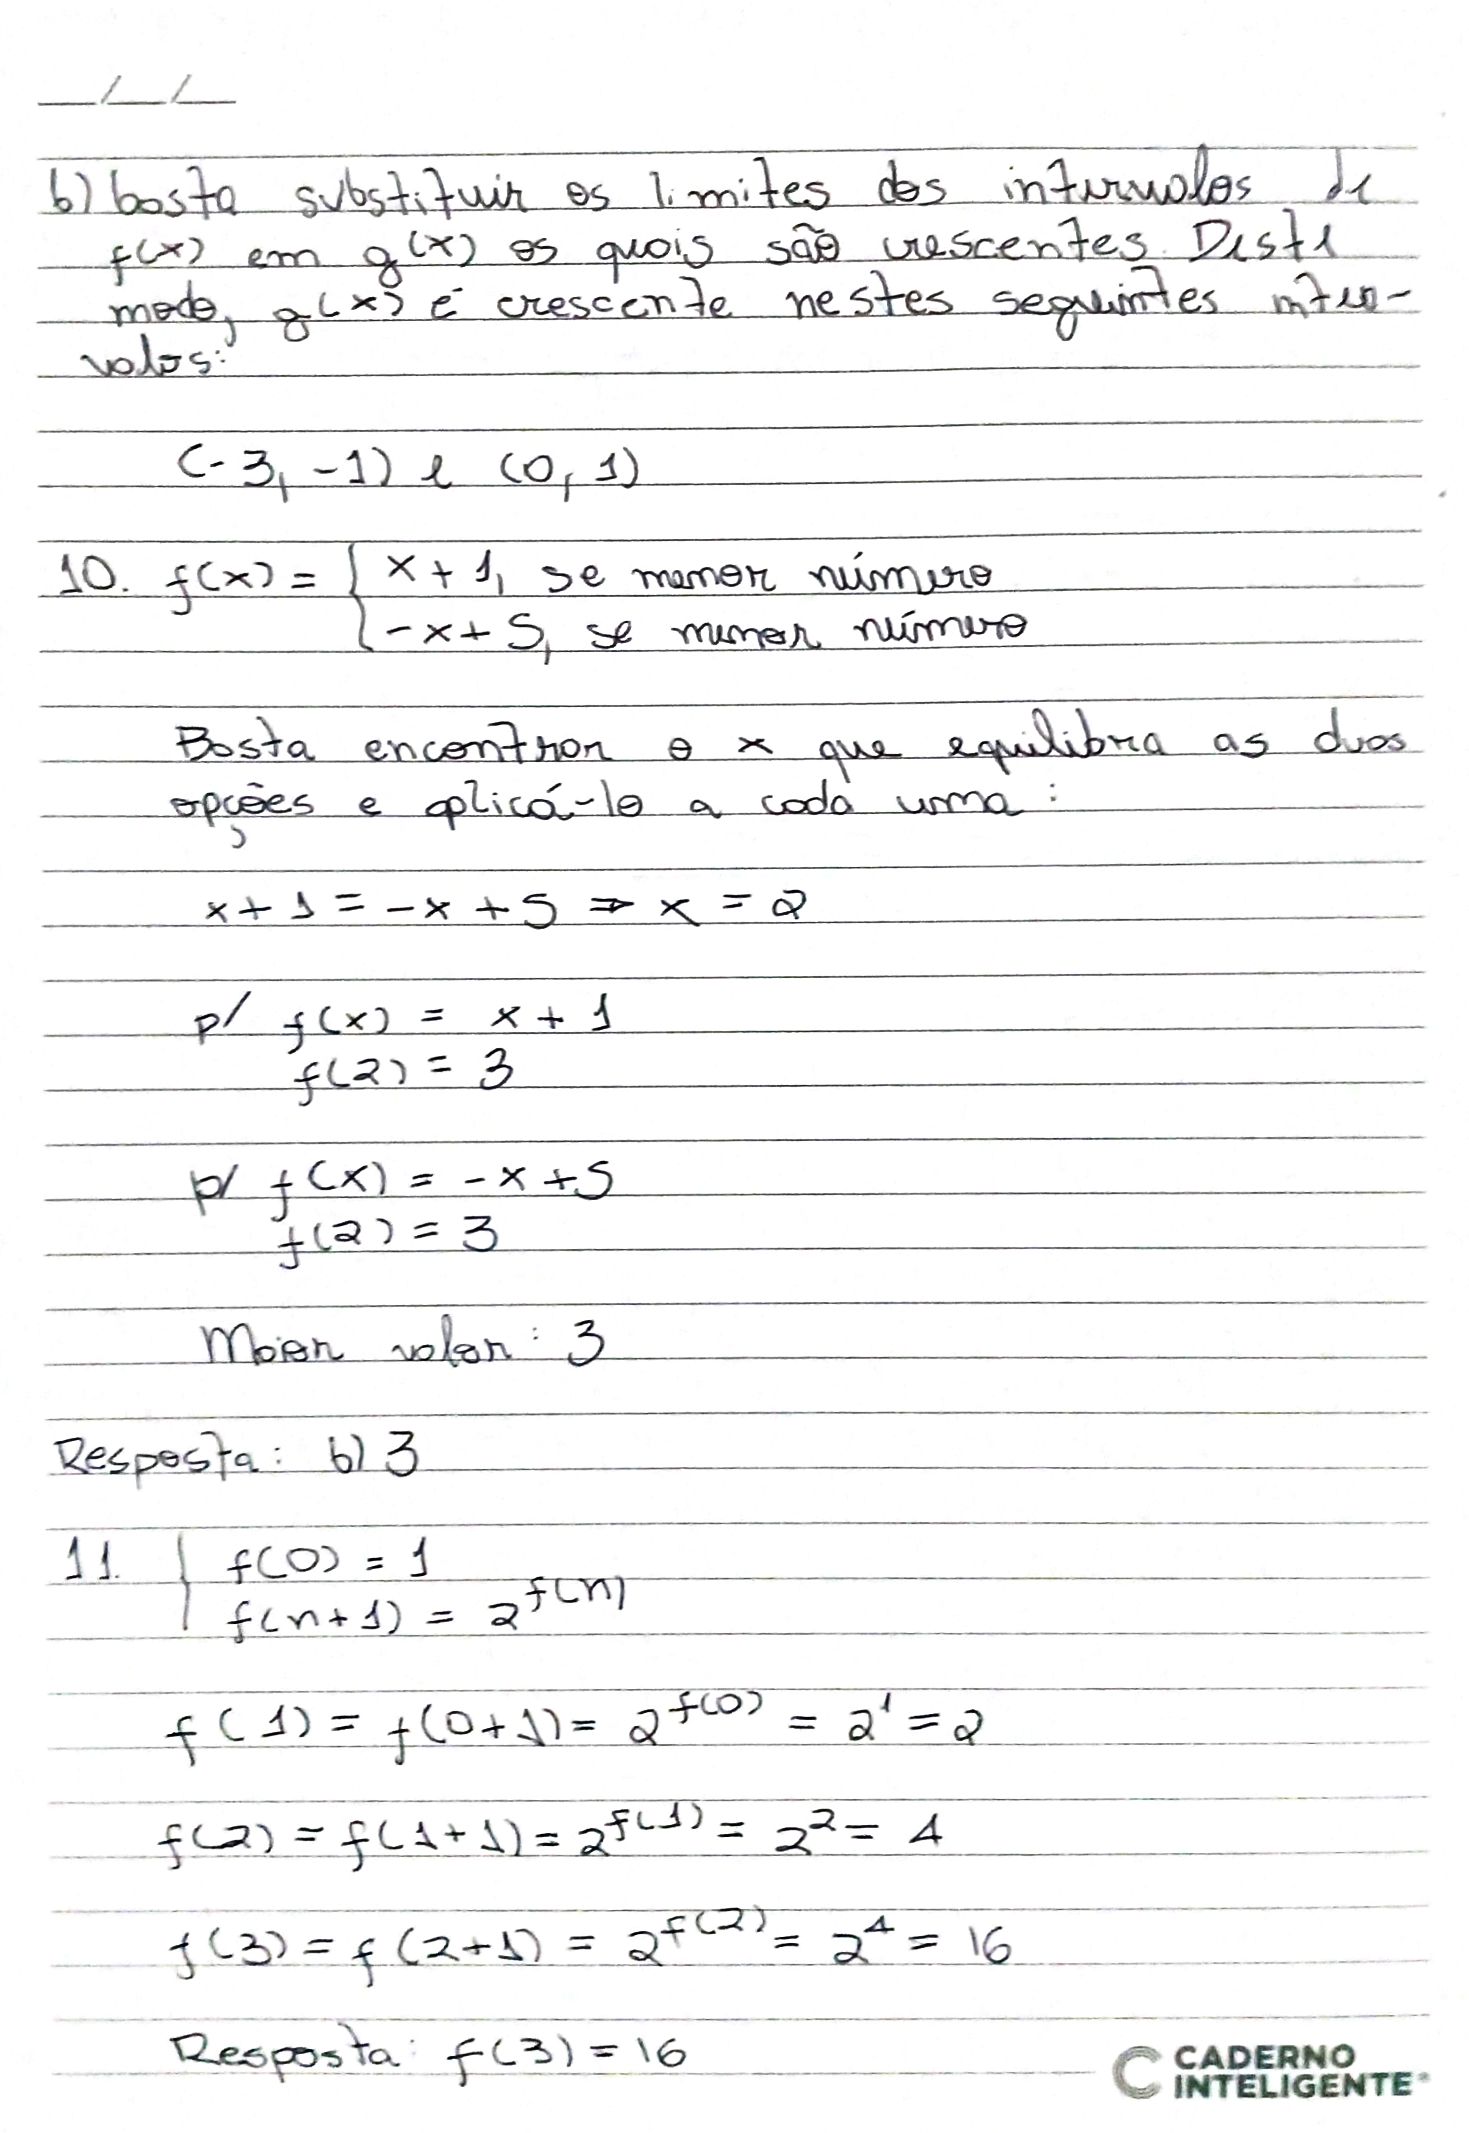 __/__/__
b) basta substituir os limites dos intervalos de
f(x) em g(x) os quais são crescentes. Deste
modo, g(x) é crescente nestes seguintes inter-
valos:
(-3, -1) e (0, 1)
10. f(x) = { x + 1, se menor número
-x + 5, se menor número
Basta encontrar o x que equilibra as duas
opções e aplicá-lo a cada uma:
x + 1 = -x + 5 ⇒ x = 2
p/ f(x) = x + 1
f(2) = 3
p/ f(x) = -x + 5
f(2) = 3
Maior valor: 3
Resposta: b) 3
11. { f(0) = 1
f(n+1) = 2^f(n)
f(1) = f(0+1) = 2^f(0) = 2^1 = 2
f(2) = f(1+1) = 2^f(1) = 2^2 = 4
f(3) = f(2+1) = 2^f(2) = 2^4 = 16
Resposta: f(3) = 16
CADERNO
INTELIGENTE®